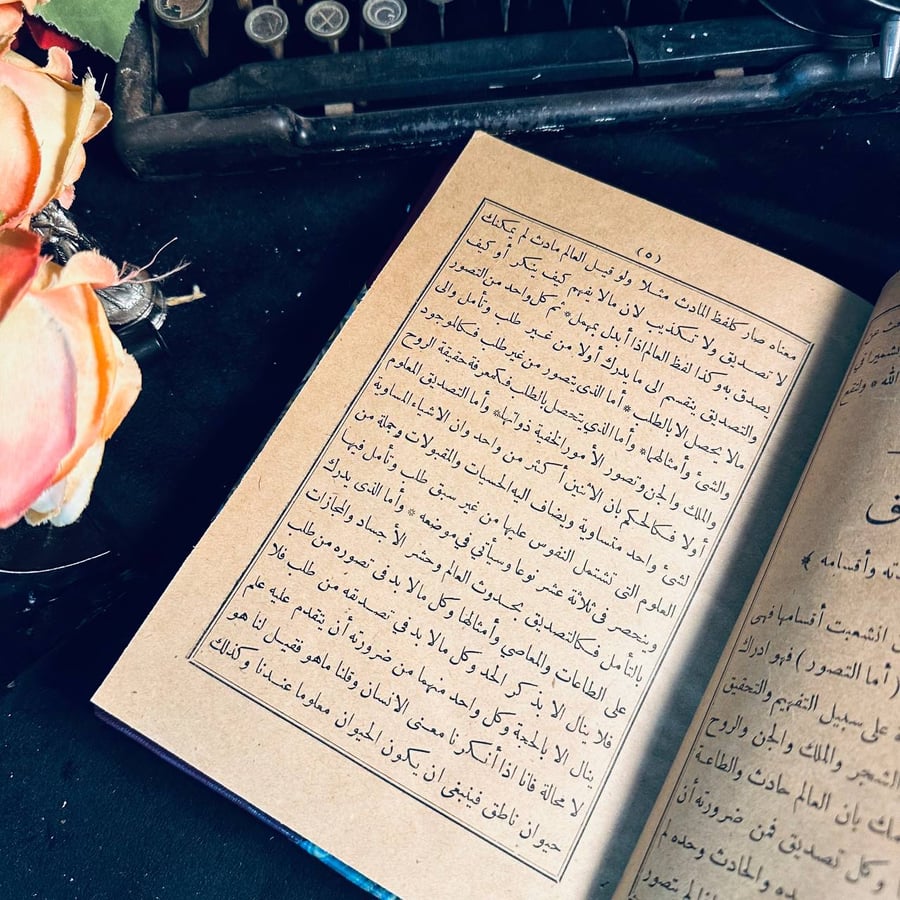 (٥)
معناه صار كلفظ المادث مثلا ولو قيل العالم مادث لم يمكنك
لا تصديق ولا تكذيب لان مالا يفهم كيف ينكر أو كيف
يصدق به وكذا لفظ العالم اذا أبدل بمهمل * ثم كل واحد من التصور
والتصديق ينقسم الى ما يدرك أولا من غير طلب وتأمل والى
مالا يحصل الا بالطلب * أما الذى يتصور من غير طلب فكالموجود
والشئ وأمثالهما * وأما الذى يتحصل بالطلب فكمعرفة حقيقة الروح
والملك والجن وتصور الأمور الخفية ذواتها * وأما التصديق المعلوم
أولا فكالحكم بان الاثنين أكثر من واحد وان الاشياء المساوية
لشئ واحد متساوية ويضاف اليه الحسيات والمقبولات وجملة من
العلوم التى تشتمل النفوس عليها من غير سبق طلب وتأمل فيها
وينحصر فى ثلاثة عشر نوعا وسيأتى في موضعه * وأما الذى يدرك
بالتأمل فكالتصديق بحدوث العالم وحشر الأجساد والمجازات
على الطاعات والمعاصي وأمثالها وكل مالا بد فى تصوره من طلب
فلا ينال الا بذكر الحد وكل مالا بد فى تصديقه من طلب فلا
ينال الا بالحجة وكل واحد منهما من ضرورته أن يتقدم عليه علم
لا محالة فانا اذا أنكرنا معنى الانسان وقلنا ماهو فقيل لنا هو
حيوان ناطق فينبغى ان يكون الحيوان معلوما عندنا وكذلك
الله * ولنقع
وأقسامه
انشعبت أقسامها فهى
(أما التصور) فهو ادراك
على سبيل التفهيم والتحقيق
الشجر والملك والجن والروح
بان العالم حادث والطاعة
وكل تصديق فمن ضرورته أن
والحادث وحده لم